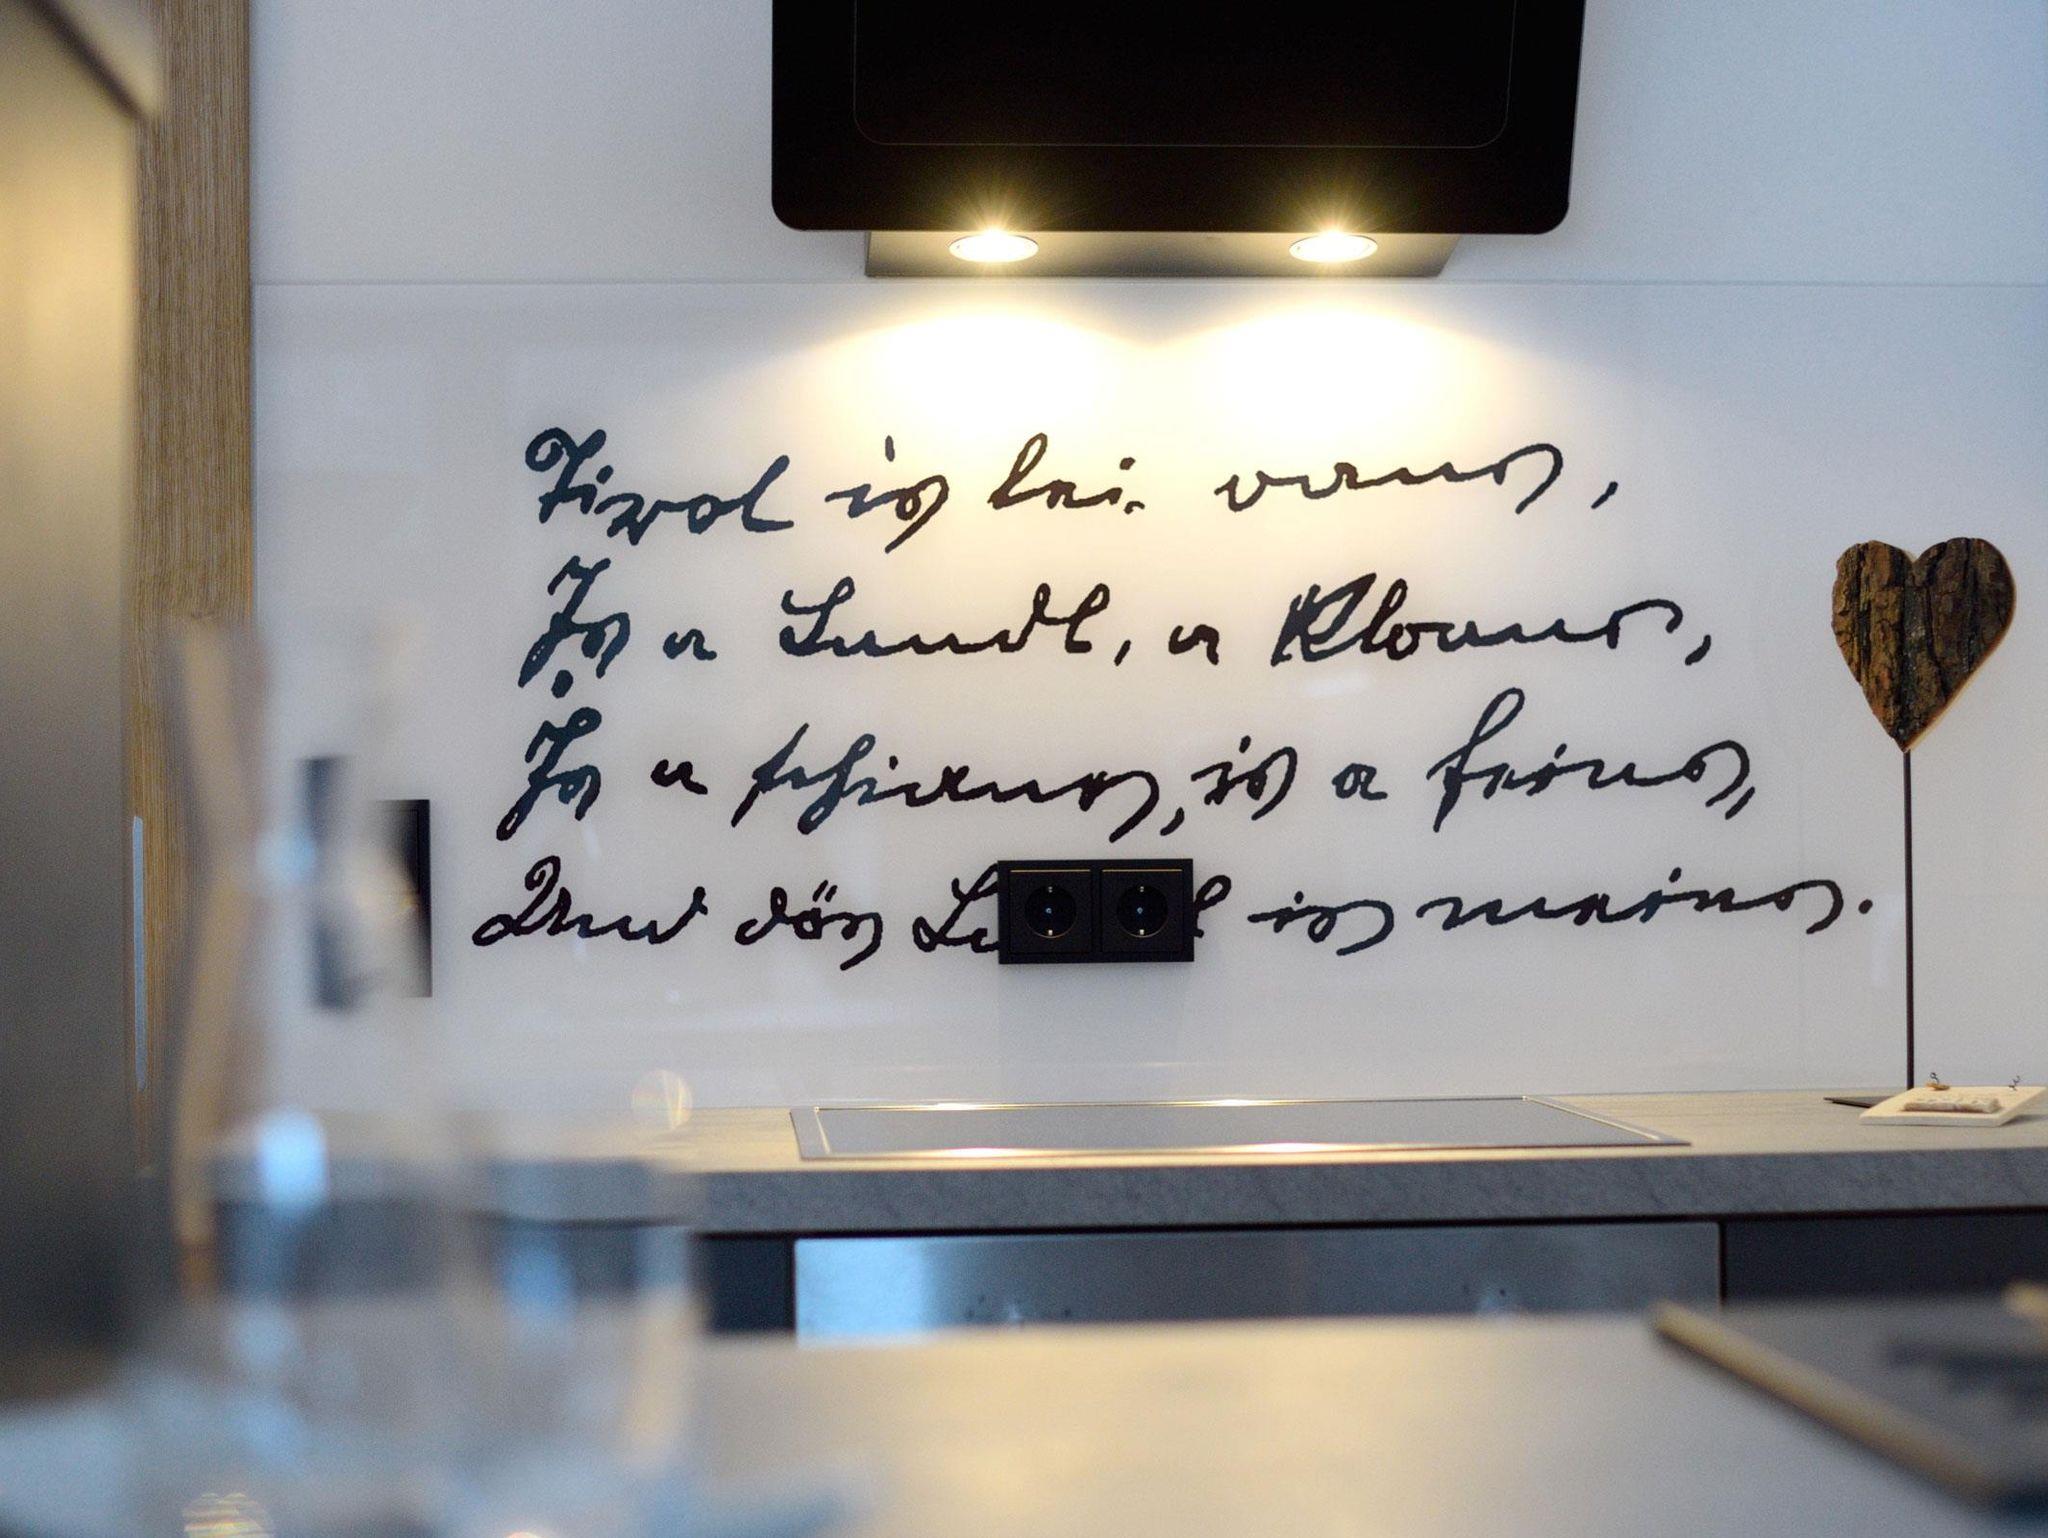 Tirol is lei oans,
Is a Landl, a kloans,
Is a schians, is a feins,
Und dös L is meins.